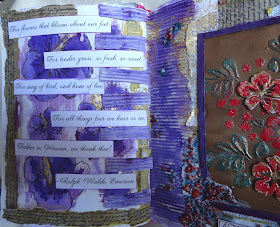 For flowers that bloom about our feet
For tender grass, so fresh, so sweet
For song of bird, and hum of bee
For all things fair we hear or see
Father in Heaven, we thank thee!
Ralph Waldo Emerson